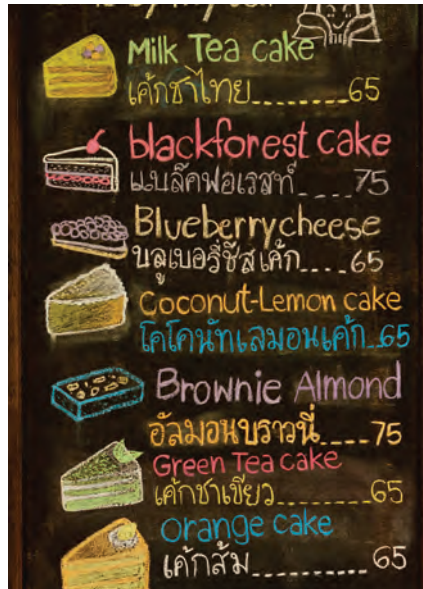 Milk Tea cake
เค้กชาไทย........65
blackforest cake
แบล็คฟอเรสท์....75
Blueberrycheese
บลูเบอรี่ชีสเค้ก....65
Coconut-Lemon cake
โคโคนัทเลมอนเค้ก..65
Brownie Almond
อัลมอนบราวนี่.....75
Green Tea cake
เค้กชาเขียว........65
orange cake
เค้กส้ม..........65